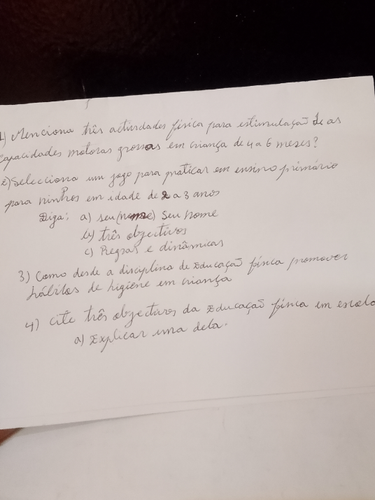 1) Menciona três actividades física para estimulação de as
capacidades motoras grossas em criança de 4 a 6 meses?
2) Selecciona um jogo para praticar em ensino primário
para ninhos em idade de 2 a 3 anos
Diga: a) seu (nome) Seu nome
b) três objectivos
c) Regras e dinâmicas
3) Como desde a disciplina de Educação física promover
hábitos de higiene em criança
4) Cite três objectivos da Educação física em escola
a) Explicar uma dela.